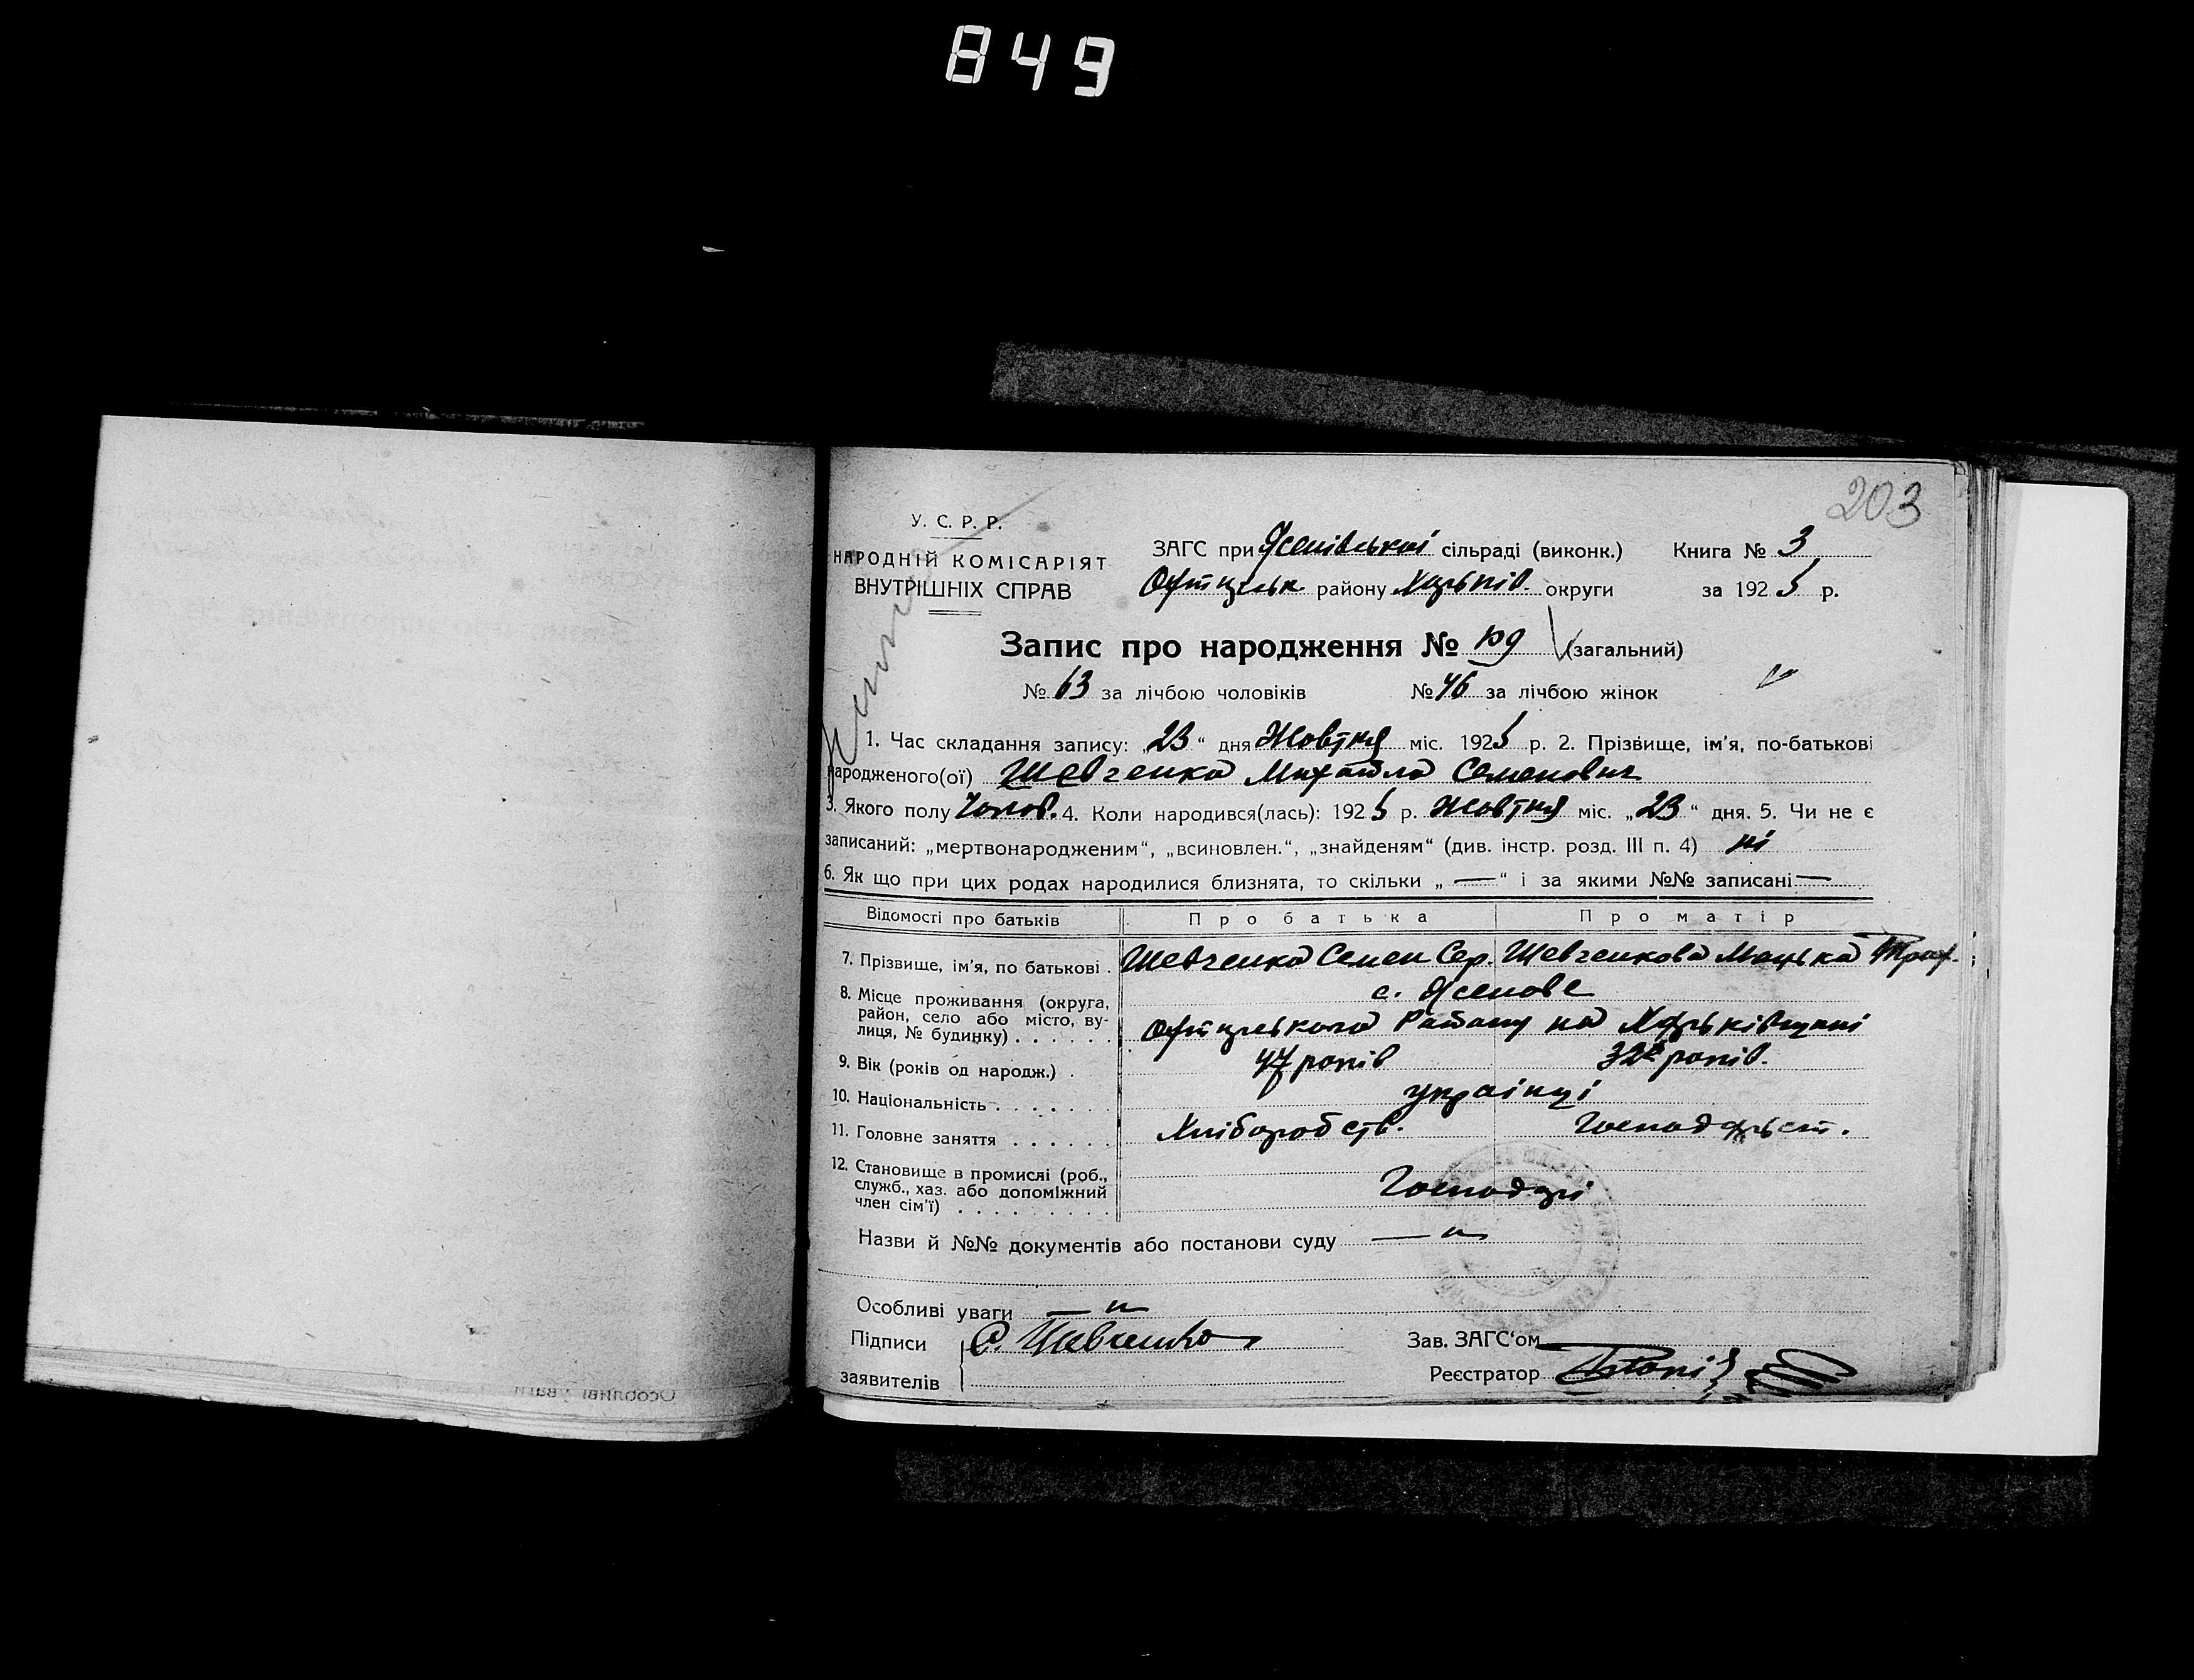 849
203
У. С. Р. Р.
НАРОДНІЙ КОМІСАРІЯТ
ВНУТРІШНІХ СПРАВ
ЗАГС при Ясенівській сільраді (виконк.) Книга № 3
району Харьків. округи за 1925 р.
Запис про народження № 109 (загальний)
№ 63 за лічбою чоловіків № 46 за лічбою жінок
1. Час складання запису: „23“ дня Жовтня міс. 1925 р. 2. Прізвище, ім'я, по-батькові
народженого(ої) Шевченко Михайло Семенович
3. Якого полу Чолов. 4. Коли народився(лась): 1925 р. Жовтня міс. „23“ дня. 5. Чи не є
записаний: „мертвонародженим“, „всиновлен.“, „знайденям“ (див. інстр. розд. III п. 4) ні
6. Як що при цих родах народилися близнята, то скільки „ — “ і за якими №№ записані —
Відомості про батьків Про батька Про матір
7. Прізвище, ім'я, по батькові . Шевченко Семен Сер. Шевченкова Троф.
8. Місце проживання (округа, район, село або місто, вулиця, № будинку) . . . . . .
с. Ясенове
Району на Харьківщині
9. Вік (років од народж.) . 47 років 32 років.
10. Національність . . . . . . . українці
11. Головне заняття . . . . . . Хліборобств. Господарьст.
12. Становище в промислі (роб.,
служб., хаз. або допоміжний
член сім'ї) . . . . . . . . . Господарі
Назви й №№ документів або постанови суду — „
Особливі уваги — „
Підписи С. Шевченко Зав. ЗАГС'ом
заявителів Реєстратор
Особливі уваги